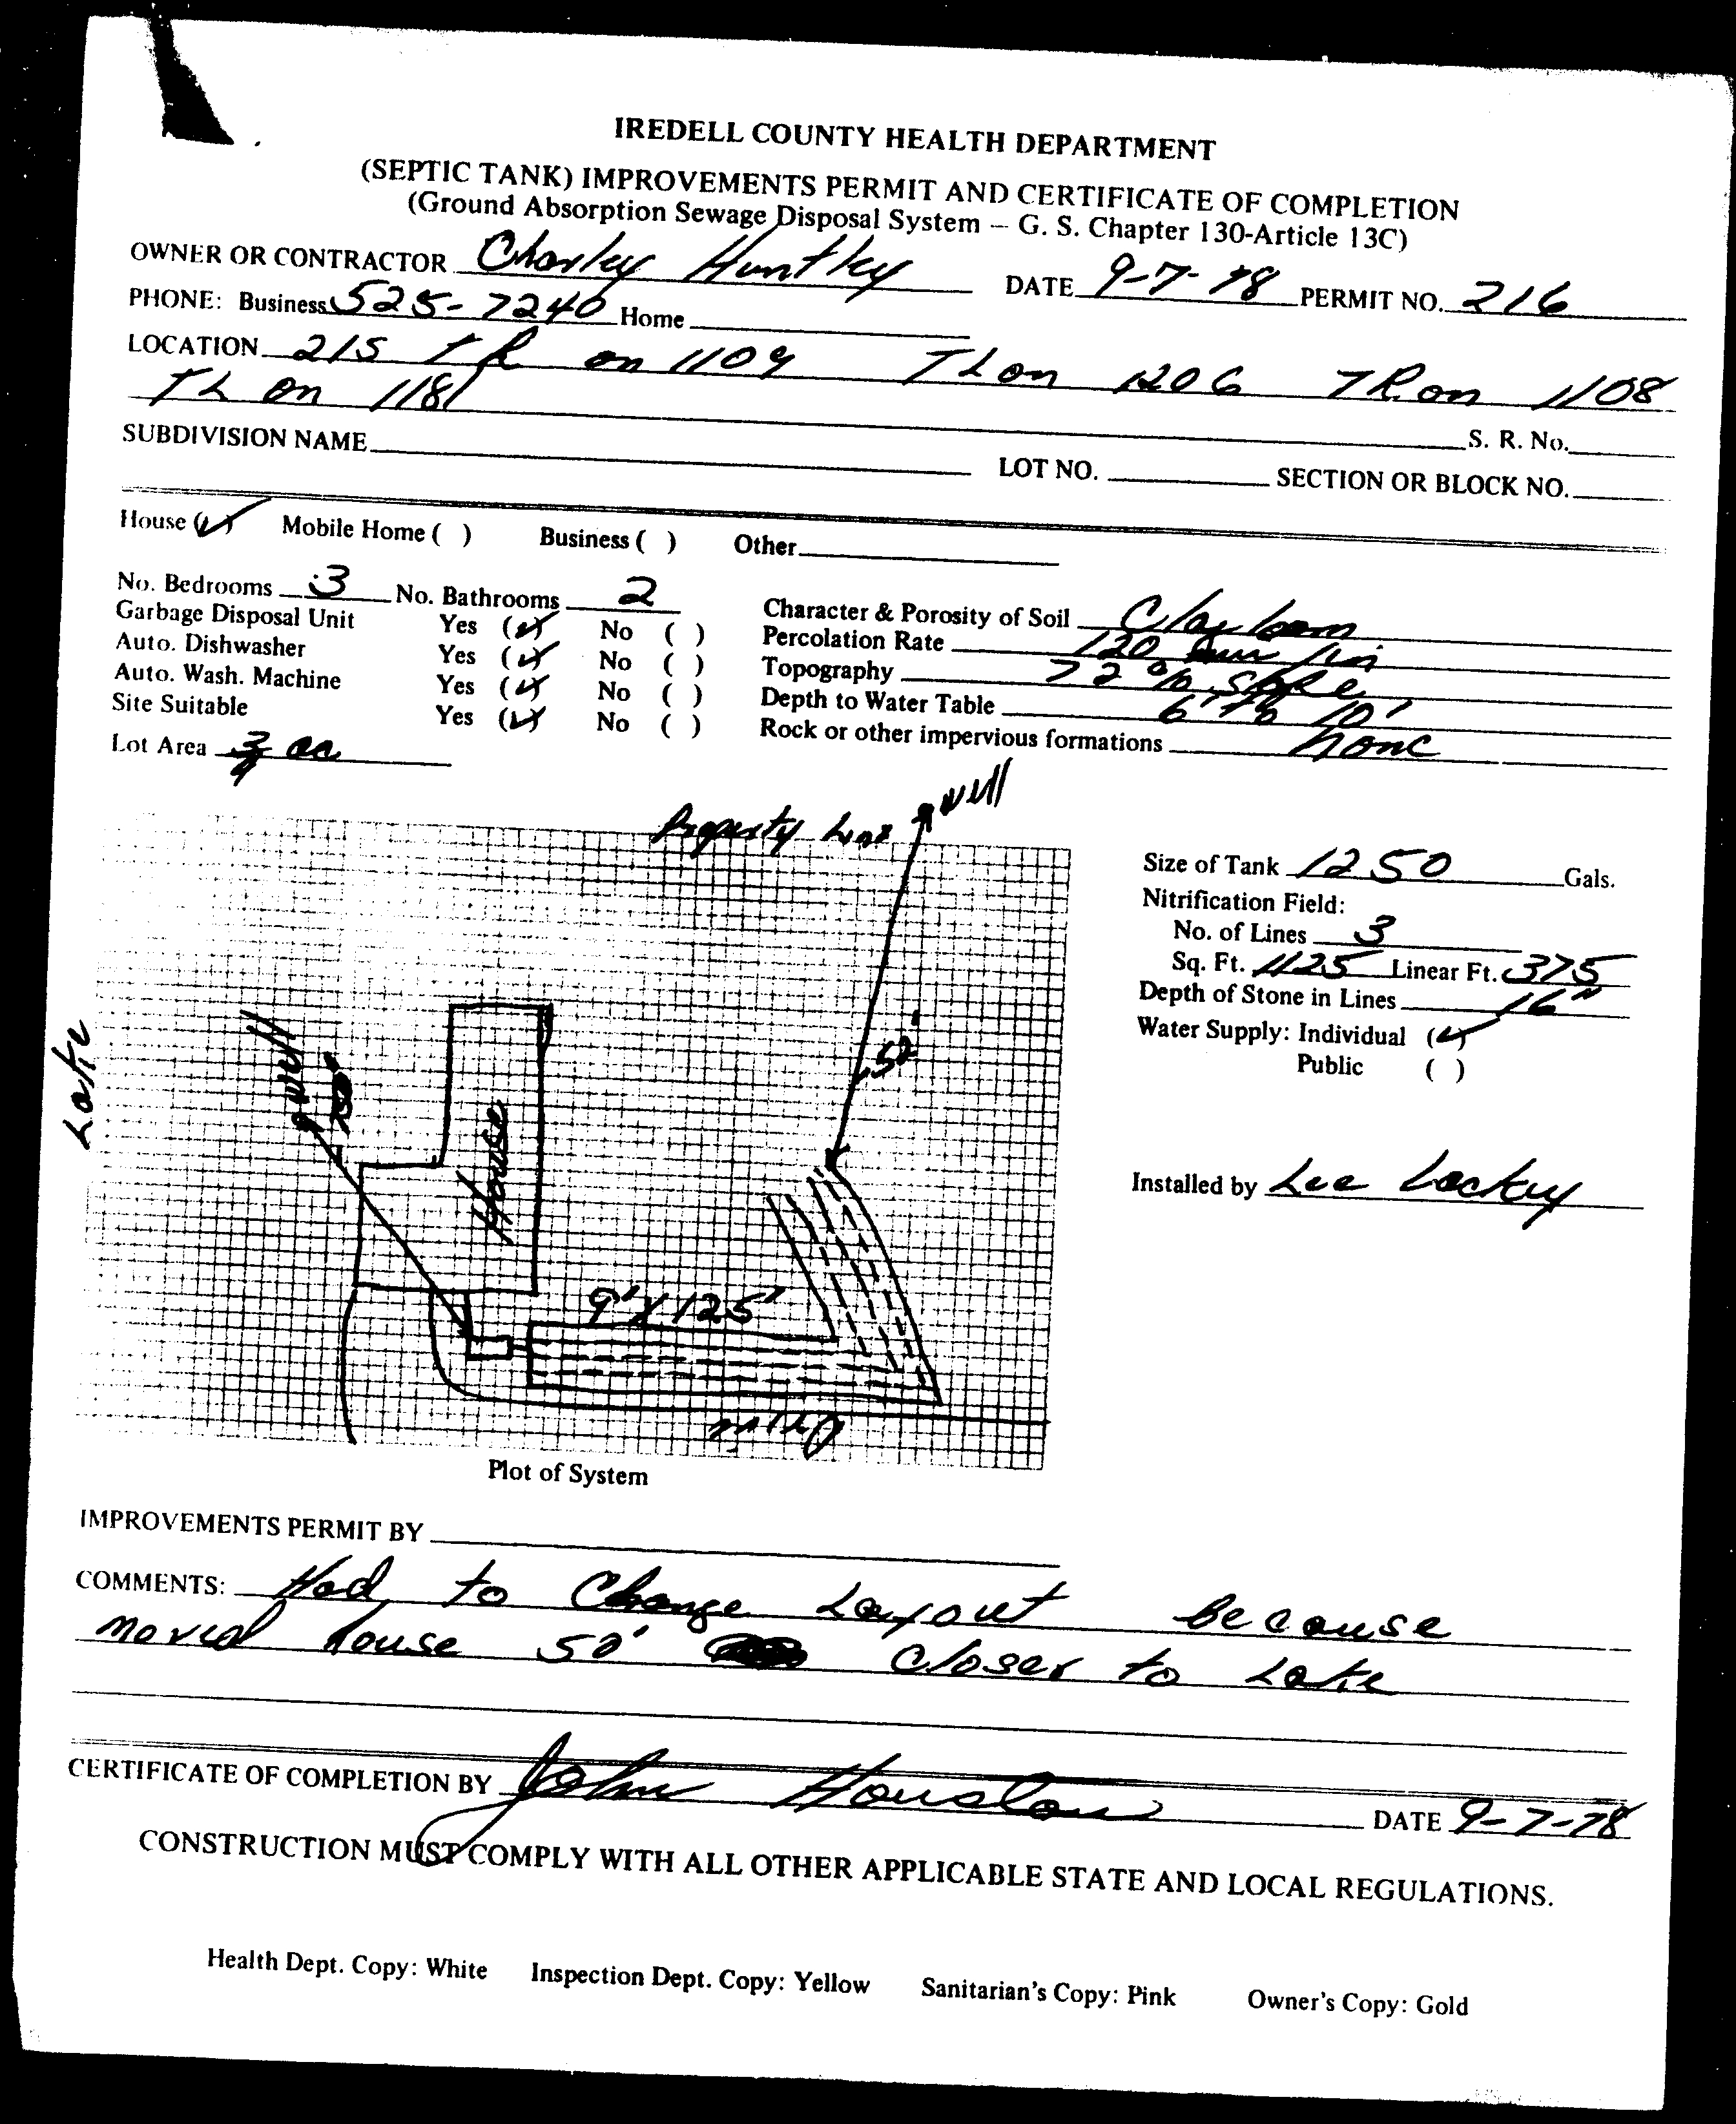 IREDELL COUNTY HEALTH DEPARTMENT
(SEPTIC TANK) IMPROVEMENTS PERMIT AND CERTIFICATE OF COMPLETION
(Ground Absorption Sewage Disposal System – G. S. Chapter 130-Article 13C)
OWNER OR CONTRACTOR Charley Huntley DATE 9-7-78 PERMIT NO. 216
PHONE: Business 525-7240 Home
LOCATION 21S TR on 1109 TL on 1206 TR on 1108
TL on 1181 S. R. No.
SUBDIVISION NAME LOT NO. SECTION OR BLOCK NO.
House (✓) Mobile Home ( ) Business ( ) Other
No. Bedrooms 3 No. Bathrooms 2 Character & Porosity of Soil Clay loam
Garbage Disposal Unit Yes (✓) No ( ) Percolation Rate 120 min/in
Auto. Dishwasher Yes (✓) No ( ) Topography > 2% slope
Auto. Wash. Machine Yes (✓) No ( ) Depth to Water Table 6' to 10'
Site Suitable Yes (✓) No ( ) Rock or other impervious formations none
Lot Area 3/4 ac
well
Property Line
Size of Tank 1250 Gals.
Nitrification Field:
No. of Lines 3
Sq. Ft. 1125 Linear Ft. 375
Depth of Stone in Lines 16"
Water Supply: Individual (✓)
Public ( )
Lake
well
House
50'
Installed by Lee Lackey
9' X 125'
Drive
Plot of System
IMPROVEMENTS PERMIT BY
COMMENTS: Had to Change Layout because
moved house 50' closer to Lake
CERTIFICATE OF COMPLETION BY John Houston DATE 9-7-78
CONSTRUCTION MUST COMPLY WITH ALL OTHER APPLICABLE STATE AND LOCAL REGULATIONS.
Health Dept. Copy: White Inspection Dept. Copy: Yellow Sanitarian's Copy: Pink Owner's Copy: Gold